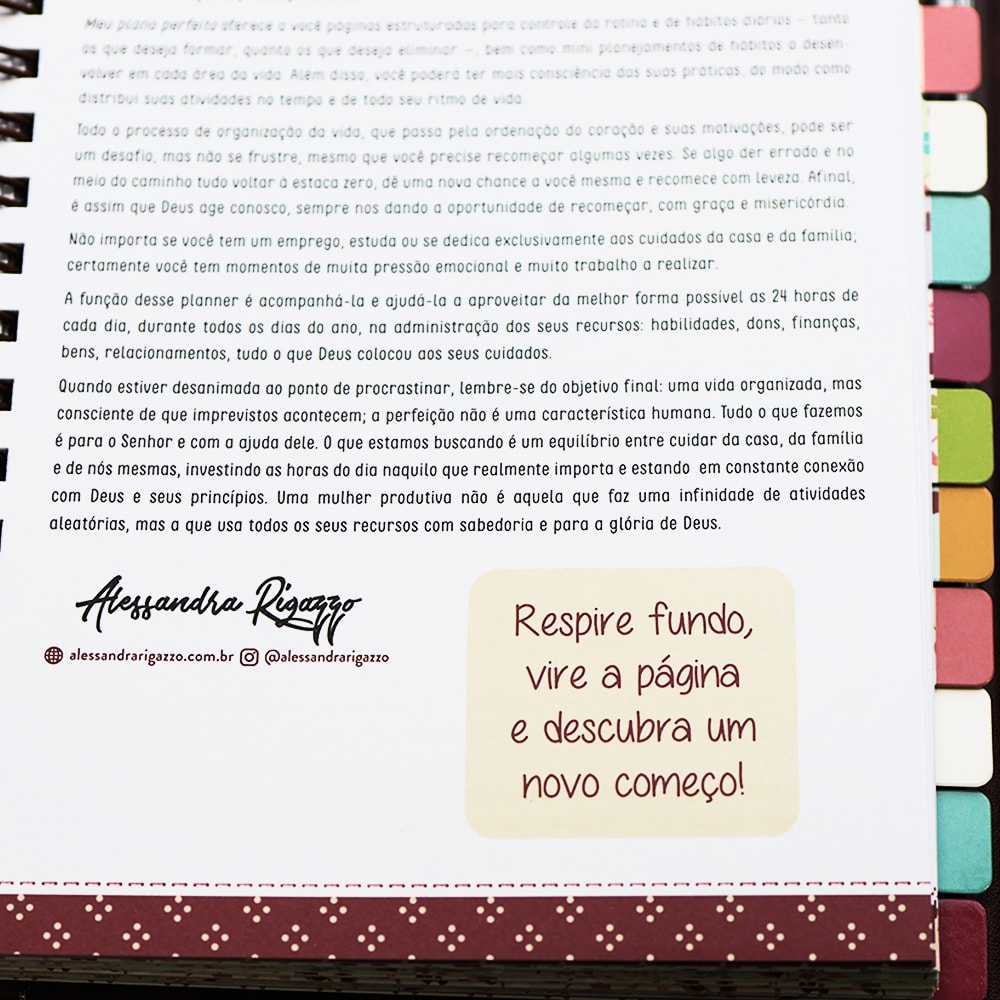 Meu plano perfeito oferece a você páginas estruturadas para controle da rotina e de hábitos diários – tanto
os que deseja formar, quanto os que deseja eliminar –, bem como mini planejamentos de hábitos a desen-
volver em cada área da vida. Além disso, você poderá ter mais consciência das suas práticas, do modo como
distribui suas atividades no tempo e de todo seu ritmo de vida.
Todo o processo de organização da vida, que passa pela ordenação do coração e suas motivações, pode ser
um desafio, mas não se frustre, mesmo que você precise recomeçar algumas vezes. Se algo der errado e no
meio do caminho tudo voltar à estaca zero, dê uma nova chance a você mesma e recomece com leveza. Afinal,
é assim que Deus age conosco, sempre nos dando a oportunidade de recomeçar, com graça e misericórdia.
Não importa se você tem um emprego, estuda ou se dedica exclusivamente aos cuidados da casa e da família;
certamente você tem momentos de muita pressão emocional e muito trabalho a realizar.
A função desse planner é acompanhá-la e ajudá-la a aproveitar da melhor forma possível as 24 horas de
cada dia, durante todos os dias do ano, na administração dos seus recursos: habilidades, dons, finanças,
bens, relacionamentos, tudo o que Deus colocou aos seus cuidados.
Quando estiver desanimada ao ponto de procrastinar, lembre-se do objetivo final: uma vida organizada, mas
consciente de que imprevistos acontecem; a perfeição não é uma característica humana. Tudo o que fazemos
é para o Senhor e com a ajuda dele. O que estamos buscando é um equilíbrio entre cuidar da casa, da família
e de nós mesmas, investindo as horas do dia naquilo que realmente importa e estando em constante conexão
com Deus e seus princípios. Uma mulher produtiva não é aquela que faz uma infinidade de atividades
aleatórias, mas a que usa todos os seus recursos com sabedoria e para a glória de Deus.
Alessandra Rigazzo
alessandrarigazzo.com.br @alessandrarigazzo
Respire fundo,
vire a página
e descubra um
novo começo!